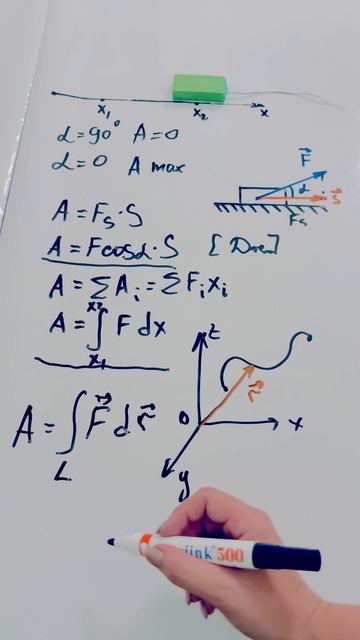 x₁ x₂ x
α=90° A=0
α=0 A max
F⃗
α S⃗
Fs
A=Fs·S
A=Fcosα·S [Дж]
A=∑Aᵢ=∑Fᵢxᵢ
A=∫ₓ₁ˣ² F dx
z
r⃗
0 x
y
A=∫L F⃗dr⃗
500